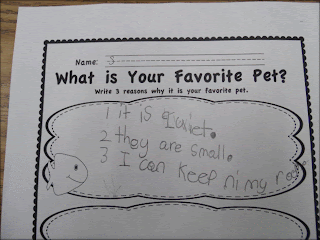 Name: 3
What is Your Favorite Pet?
Write 3 reasons why it is your favorite pet.
1 it is quiet.
2 they are small.
3 I can keep ni my